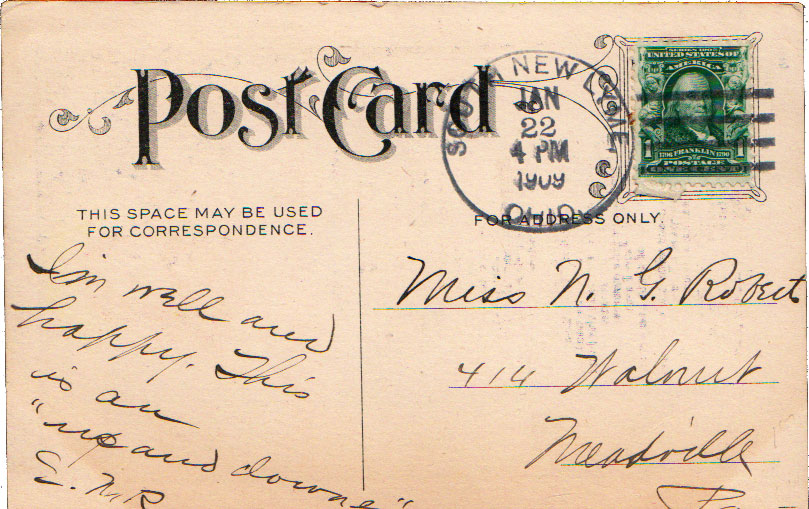 Post Card
SOUTH NEW LYME
JAN
22
4 PM
1909
OHIO
SERIES 1902
UNITED STATES OF
AMERICA
1706 FRANKLIN 1790
1 POSTAGE 1
ONE CENT
THIS SPACE MAY BE USED
FOR CORRESPONDENCE.
FOR ADDRESS ONLY.
I'm well and
happy. This
is an
"up and downe"
E. M. R
Miss N. G. Robert
414 Walnut
Meadville
Pa